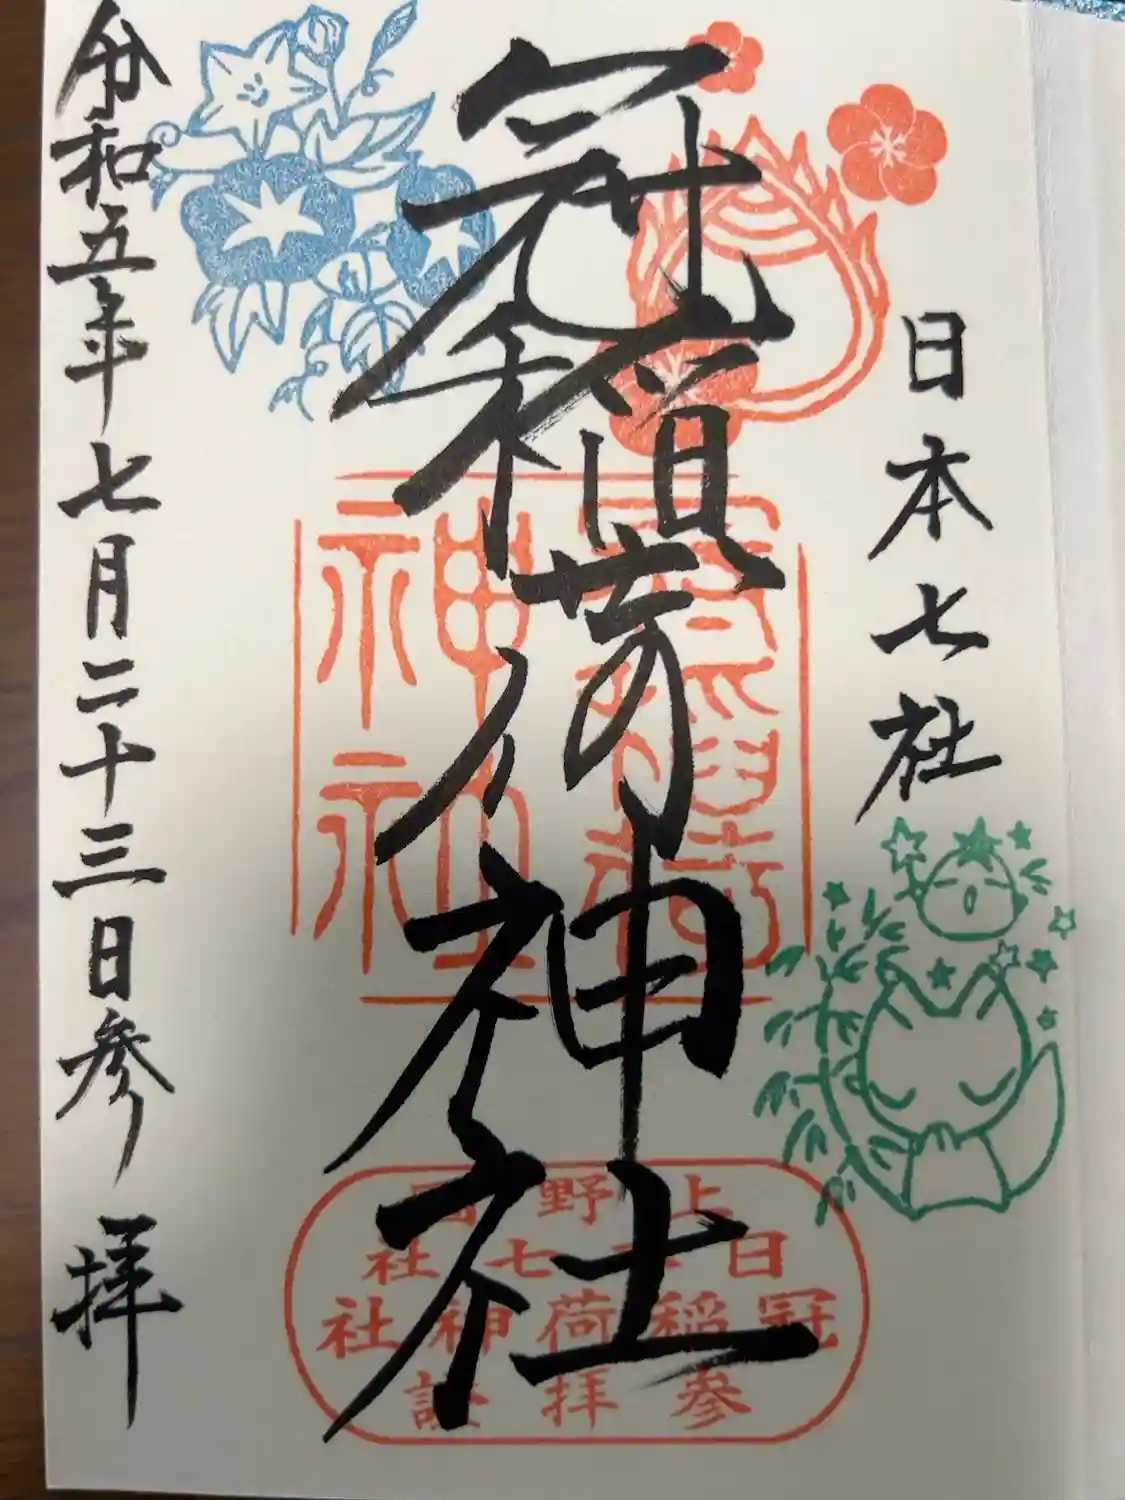 日本七社
冠稲荷神社
令和五年七月二十三日参拝
冠稲荷
神社
上野國
日本七社
冠稲荷神社
参拝證